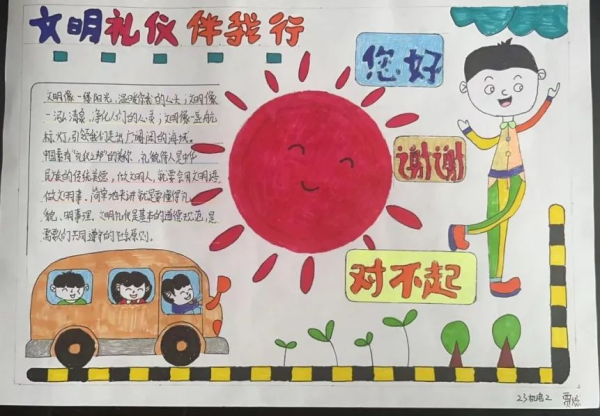 文明礼仪伴我行
您好
谢谢
对不起
文明像一缕阳光,温暖你我的心灵;文明像
一泓清泉,净化人们的心灵;文明像一盏航
标灯,引领我们走出广阔的海域。
中国素有“礼仪之邦”的称
民族的传统美德,做文明人,就要会用文明语,
做文明事。简单地来讲就是要懂得礼
貌、明事理。文明礼仪是基本的道德规范,是
需我们共同遵守的
23机电2